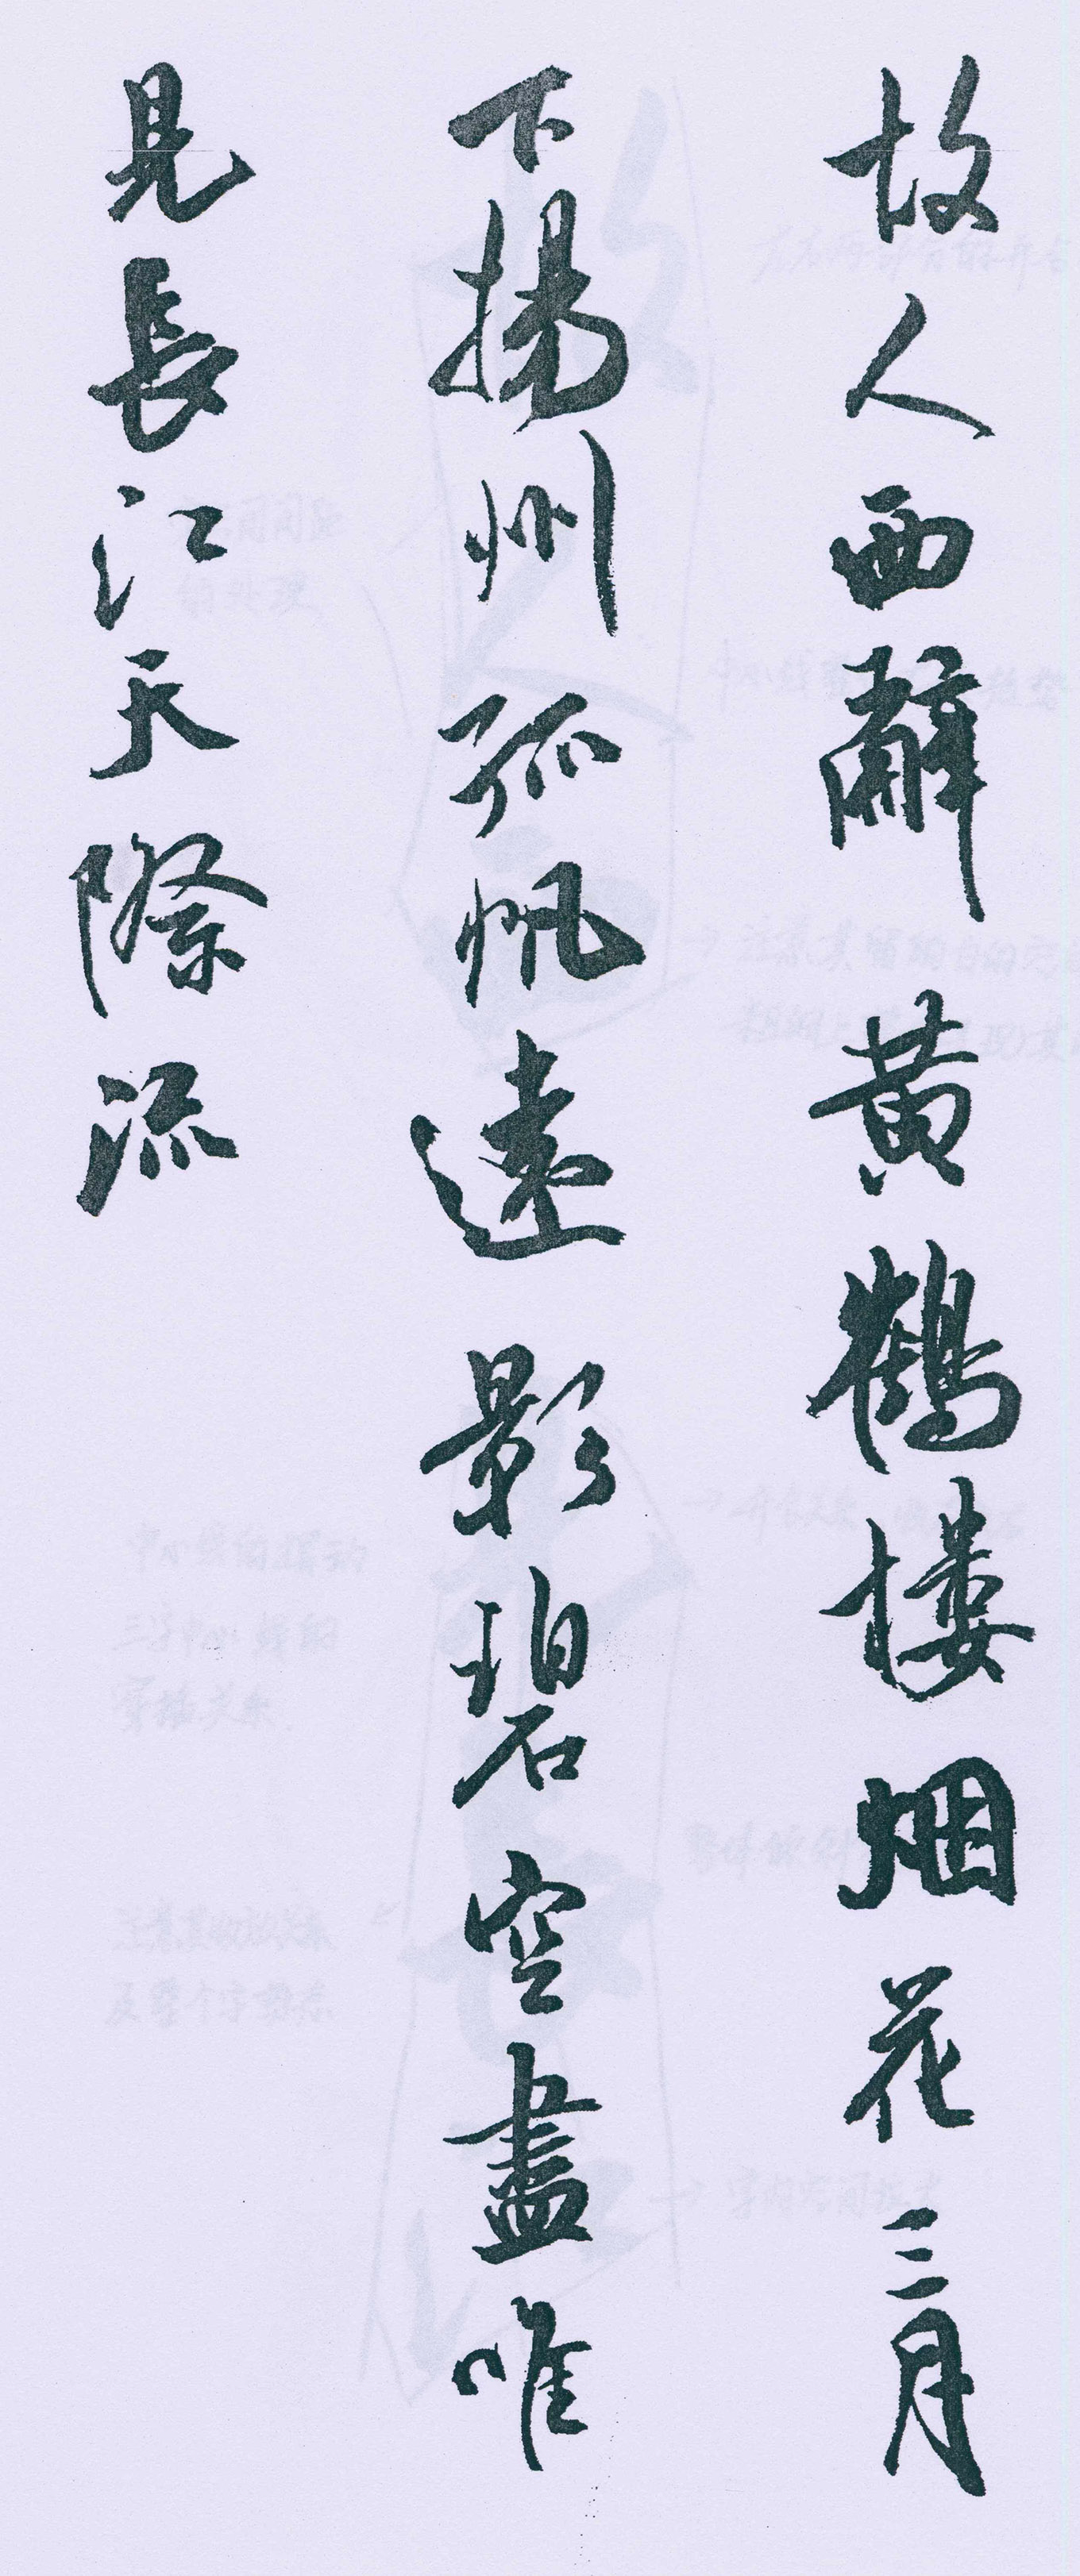 故人西辭黃鶴樓烟花三月
下揚州孤帆遠影碧空盡唯
見長江天際流